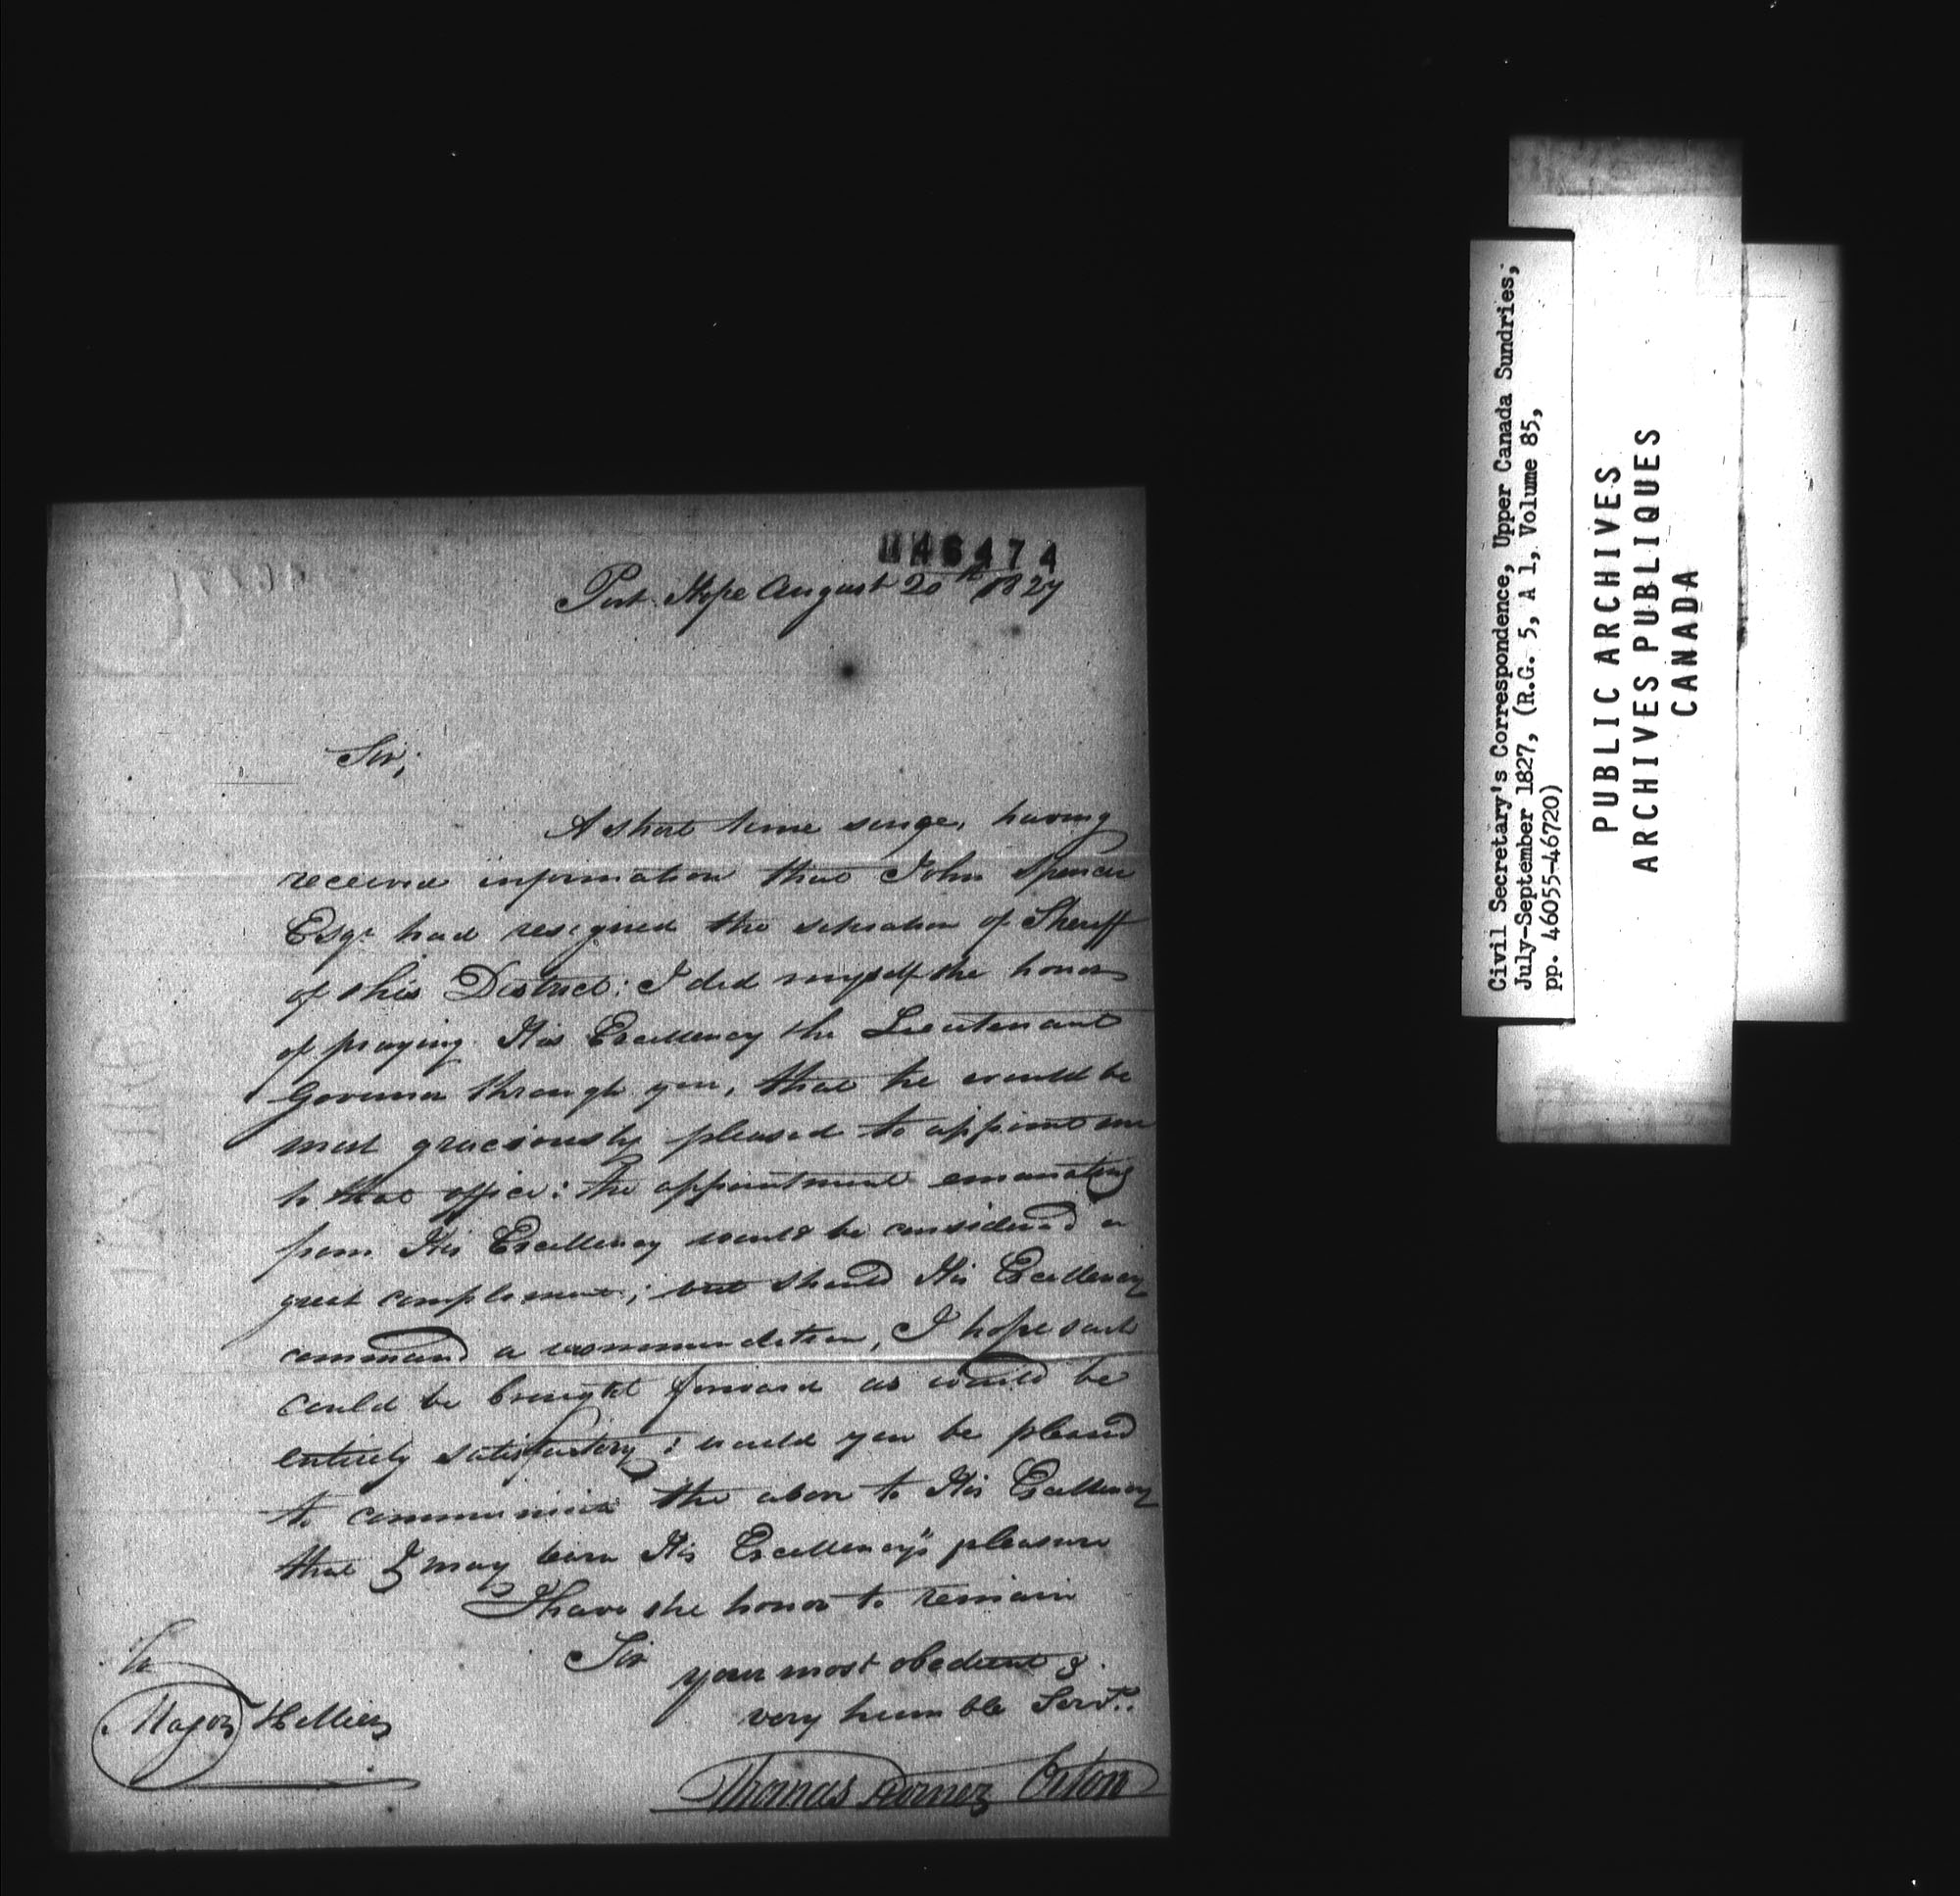 046474
Port Hope August 20th 1827
Sir,
A short time singe, having
received information that John Spencer
Esqr had resigned the situation of Sheriff
of this District: I did myself the honor
of praying His Excellency the Lieutenant
Governor through you, that he would be
most graciously pleased to appoint me
to that office: the appointment emanating
from His Excellency would be considered a
great complement; but should His Excellency
command a recommendation, I hope such
could be brought forward as would be
entirely satisfactory: would you be pleased
to communicate the above to His Excellency
that I may learn His Excellency's pleasure
I have the honor to remain
Sir your most obedient &
very humble Servt.
Thomas Orton
To
Major Hillier
Civil Secretary's Correspondence, Upper Canada Sundries,
July-September 1827, (R.G. 5, A 1, Volume 85,
pp. 46055-46720)
PUBLIC ARCHIVES
ARCHIVES PUBLIQUES
CANADA